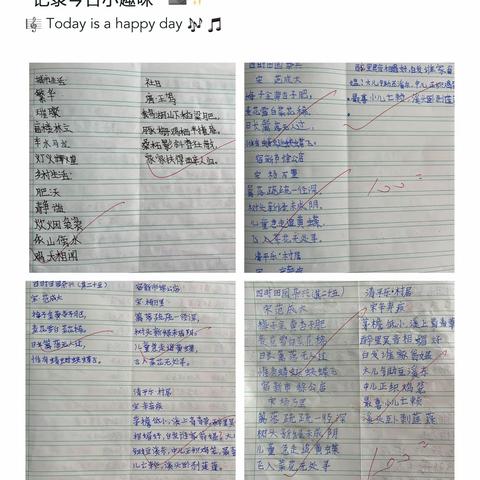 记录今日小趣味
Today is a happy day
城市生活:
繁华
璀璨
高楼林立
车水马龙
灯火辉煌
乡村生活:
肥沃
静谧
炊烟袅袅
依山傍水
鸡犬相闻
社日
唐·王驾
桑柘影斜春社散,
家家扶得醉人归。
四时田园杂兴
宋 范成大
梅子金黄杏子肥,
麦花雪白菜花稀。
日长篱落无人过,
惟有蜻蜓蛱蝶飞。
宿新市徐公店
宋 杨万里
篱落疏疏一径深,
树头新绿未成阴。
儿童急走追黄蝶,
飞入菜花无处寻。
清平乐·村居
最喜小儿亡赖,溪头卧剥莲蓬
100
四时田园杂兴(其二十五)
宋 范成大
梅子金黄杏子肥,
麦花雪白菜花稀。
日长篱落无人过,
惟有蜻蜓蛱蝶飞。
宿新市徐公店
宋 杨万里
篱落疏疏一径深,
树头新绿未成阴。
儿童急走追黄蝶,
飞入菜花无处寻。
清平乐·村居
宋 辛弃疾
四时田园杂兴(其二十五)
宋 范成大
梅子金黄杏子肥
麦花雪白菜花稀
日长篱落无人过
惟有蜻蜓蛱蝶飞
宿新市徐公店
宋 杨万里
篱落疏疏一径深
树头新绿未成阴
儿童急走追黄蝶
飞入菜花无处寻
清平乐·村居
宋 辛弃疾
茅檐低小,溪上青青草
醉里吴音相媚好
白发谁家翁媪
大儿锄豆溪东
中儿正织鸡笼
最喜小儿亡赖
溪头卧剥莲蓬
100